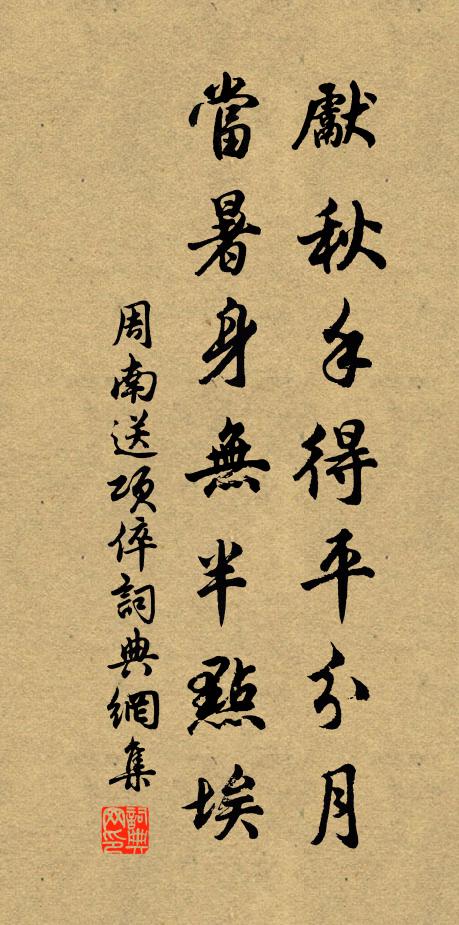 獻秋手得平分月
當暑身無半點埃
周南送項倅詞典網集
詞典网印